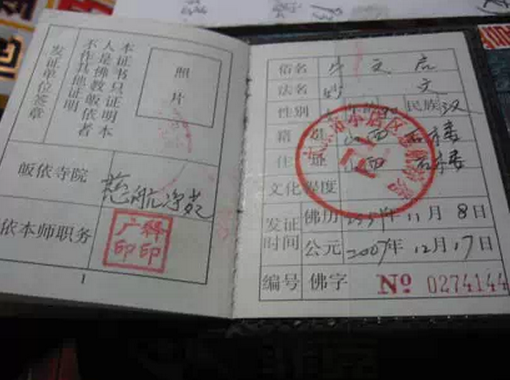 本证书只证明本
人是佛教皈依者
不作其他证明
发证单位签章
照
片
皈依寺院
慈航净苑
依本师职务
广释
印印
1
俗名
法名 妙文
性别 民族 汉
籍贯 山西 石楼
住址 山西 石楼
文化程度
发证时间
佛历 2551年11月8日
公元 2007年12月17日
编号 佛字 No 0274144